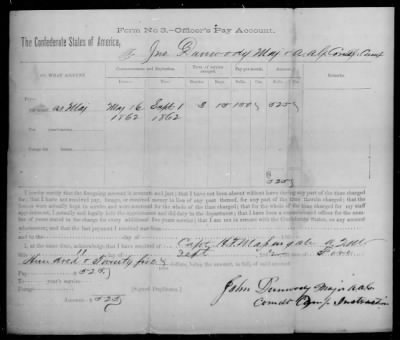 Form No. 3.—Officer's Pay Account.
The Confederate States of America,
To Jno. Dunwody Maj & A.A.G. Comdt Camp
ON WHAT ACCOUNT.
Commencement and Expiration.
Term of service charged.
Pay per month.
Amount.
Remarks.
From—
To—
Months.
Days.
Dolls.
Cts.
Dolls.
Cts.
PAY—
as Maj
May 16 1862
Sept. 1 1862
3
15
150
525
525
I hereby certify that the foregoing account is accurate and just; that I have not been absent without leave during any part of the time charged
for; that I have not received pay, forage, or received money in lieu of any part thereof, for any part of the time therein charged; that the
horses were actually kept in service and were mustered for the whole of the time charged; that for the whole of the time charged for my staff
appointment, I actually and legally held the appointment and did duty in the department; that I have been a commissioned officer for the num-
ber of years stated in the charge for every additional five years' service; that I am not in arrears with the Confederate States, on any account
whatsoever; and that the last payment I received was from
and to the day of
I, at the same time, acknowledge that I have received of Capt.
this day of Sept Five
Hundred & Twenty five dollars, being the amount, in full of said account.
Pay 525
years' service
Forage
Amount, $ 525
[Signed Duplicates.]
John Dunwody Major
Comdt Camp Instruction